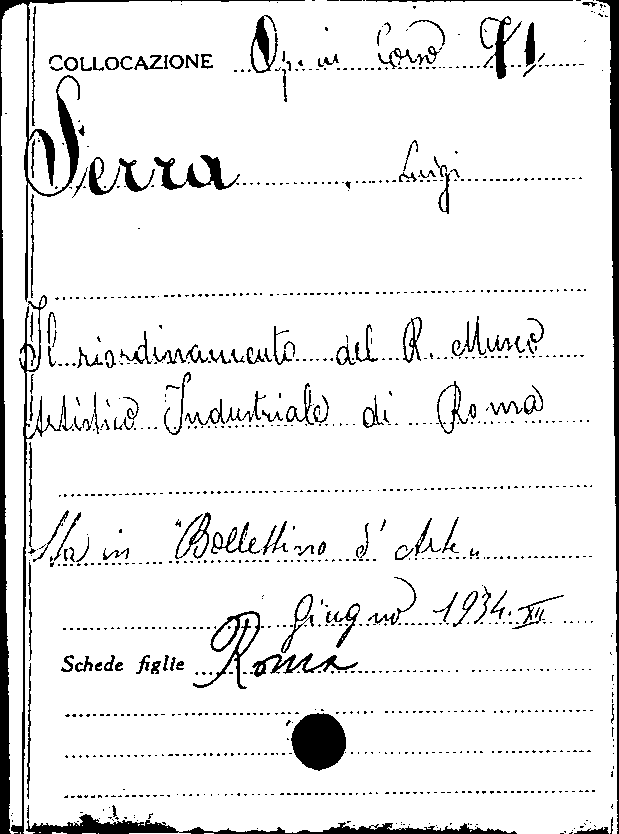 COLLOCAZIONE Op. in Corso 71
Serra, Luigi
Il riordinamento del R. Museo
Artistico Industriale di Roma
Sta in "Bollettino d'Arte"
Giugno 1934. XII
Schede figlie Roma